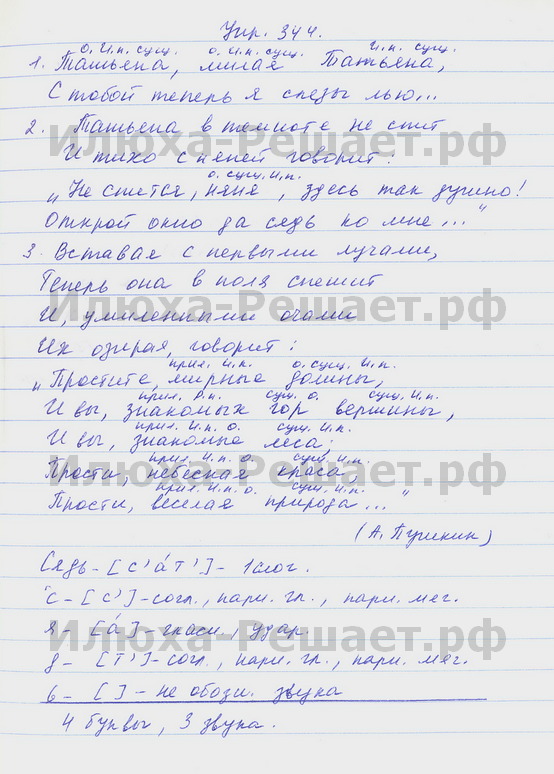 Упр. 344.
о. и.п. сущ. о. и.п. сущ. и.п. сущ.
1. Татьяна, милая Татьяна,
С тобой теперь я слезы лью...
2. Татьяна в темноте не спит
Илюха-Решает.рф
И тихо с няней говорит:
о. сущ. и.п.
„Не спится, няня, здесь так душно!
Открой окно да сядь ко мне..."
3. Вставая с первыми лучами,
Теперь она в поля спешит
Илюха-Решает.рф
И, умиленными очами
Их озирая, говорит:
прил. и.п. о. сущ. и.п.
„Простите, мирные долины,
прил. р.п. сущ. о. сущ. и.п.
И вы, знакомых гор вершины,
прил. и.п. о. сущ. и.п.
И вы, знакомые леса;
прил. и.п. о. сущ. и.п.
Прости, небесная краса,
Илюха-Решает.рф
прил. и.п. о. сущ. и.п.
Прости, веселая природа..."
(А. Пушкин)
Сядь - [с'а́т'] - 1 слог.
с - [с'] - согл., парн. гл., парн. мяг.
я - [а́] - гласн., удар.
Илюха-Решает.рф
д - [т'] - согл., парн. гл., парн. мяг.
ь - [ ] - не обозн. звука
4 буквы, 3 звука.